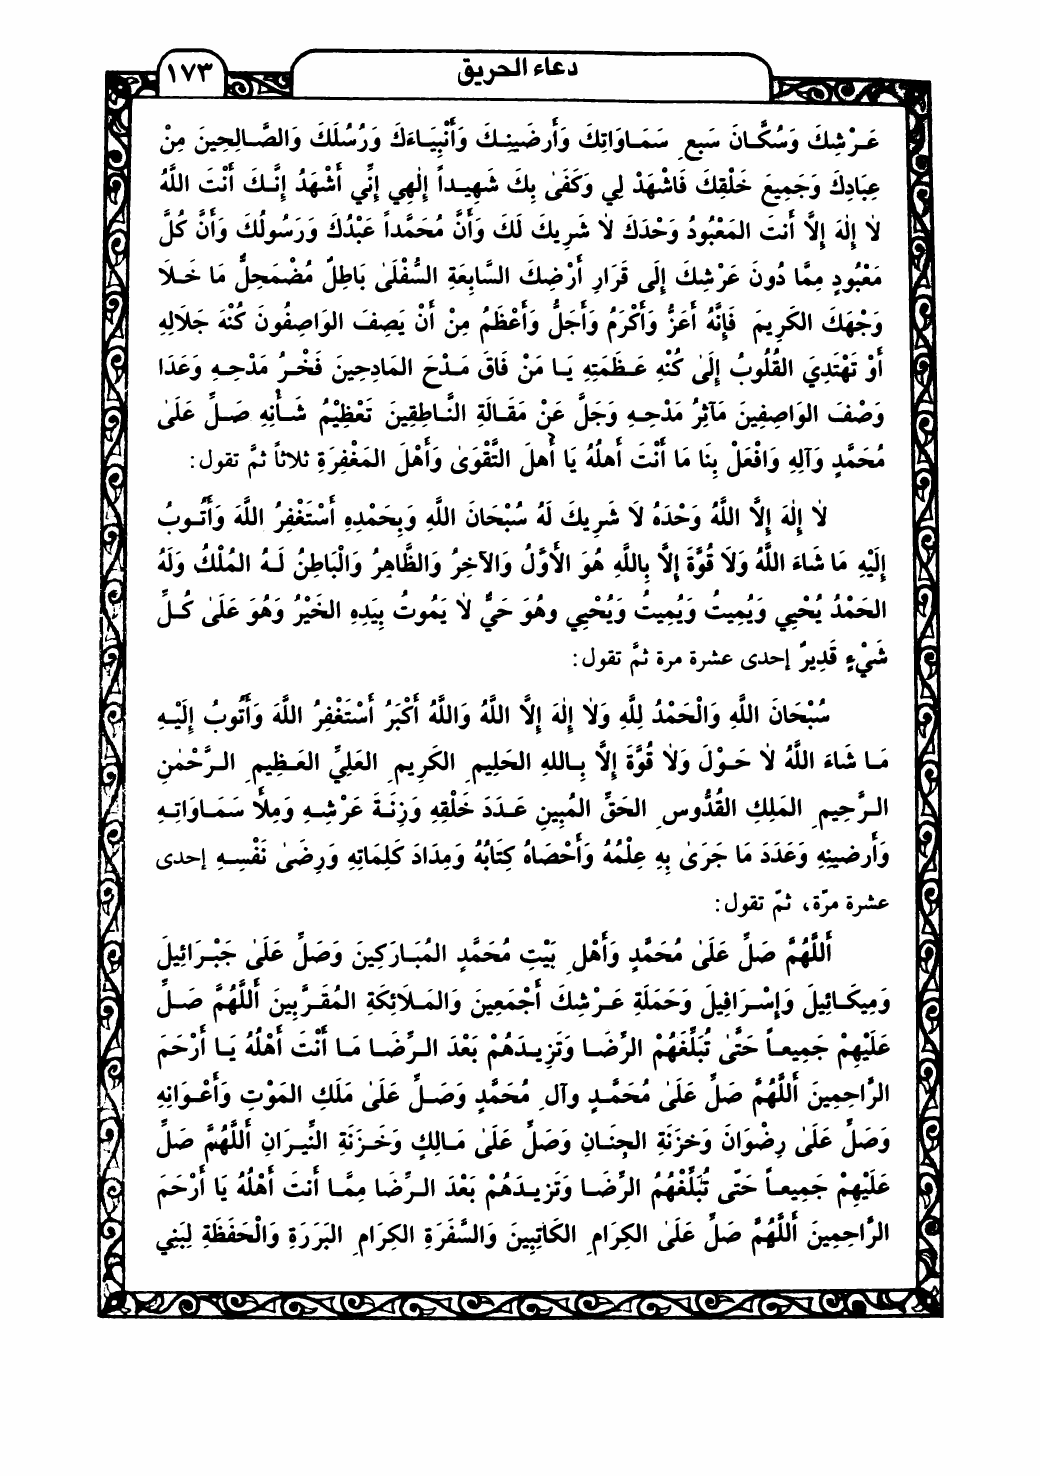 دعاء الحريق
١٧٣
عَـرْشِكَ وَسُكَّـانَ سَبعِ سَمَـاوَاتِكَ وَأَرضَيـنِـكَ وَأَنْبِيَـاءَكَ وَرُسُلَكَ وَالصَّـالِحِينَ مِنْ
عِبَادِكَ وَجَمِيعَ خَلْقِكَ فَاشْهَدْ لِي وَكَفَىٰ بِكَ شَهِيـداً إِلٰهِي إِنِّي أَشْهَدُ إِنَّـكَ أَنْتَ اللَّهُ
لاٰ إِلٰهَ إِلَّا أَنتَ المَعْبُودُ وَحْدَكَ لاٰ شَرِيكَ لَكَ وَأَنَّ مُحَمَّداً عَبْدُكَ وَرَسُولُكَ وَأَنَّ كُلَّ
مَعْبُودٍ مِمَّا دُونَ عَرْشِكَ إِلَى قَرَارِ أَرْضِكَ السَّابِعَةِ السُّفْلَىٰ بَاطِلٌ مُضْمَحِلٌّ مَا خَـلَا
وَجْهَكَ الكَرِيمَ فَإِنَّهُ أَعَزُّ وَأَكْرَمُ وَأَجَلُّ وَأَعْظَمُ مِنْ أَنْ يَصِفَ الوَاصِفُونَ كُنْهَ جَلَالِهِ
أَوْ تَهْتَدِيَ القُلُوبُ إِلَىٰ كُنْهِ عَـظَمَتِهِ يَـا مَنْ فَاقَ مَـدْحَ المَادِحِينَ فَخْـرُ مَدْحِـهِ وَعَدَا
وَصْفَ الوَاصِفِينَ مَآثِرُ مَدْحِـهِ وَجَلَّ عَنْ مَقَـالَةِ النَّـاطِقِينَ تَعْظِيْمُ شَـأْنِهِ صَـلِّ عَلَىٰ
مُحَمَّدٍ وَآلِهِ وَافْعَلْ بِنَا مَا أَنْتَ أَهلُهُ يَا أَهلَ التَّقْوَىٰ وَأَهْلَ المَغْفِرَةِ ثلاثاً ثمَّ تقول:
لاٰ إِلٰهَ إِلَّا اللَّهُ وَحْدَهُ لَا شَرِيكَ لَهُ سُبْحَانَ اللَّهِ وَبِحَمْدِهِ أَسْتَغْفِرُ اللَّهَ وَأَتُـوبُ
إِلَيْهِ مَا شَاءَ اللَّهُ وَلَا قُوَّةَ إِلَّا بِاللَّهِ هُوَ الأَوَّلُ وَالآخِرُ وَالظَّاهِرُ وَالْبَاطِنُ لَـهُ المُلْكُ وَلَهُ
الحَمْدُ يُحْيِي وَيُمِيتُ وَيُمِيتُ وَيُحْيِي وهُوَ حَيٌّ لاٰ يَمُوتُ بِيَدِهِ الخَيْرُ وَهُوَ عَلَىٰ كُـلِّ
شَيْءٍ قَدِيرٌ إحدى عشرة مرة ثمَّ تقول:
سُبْحَانَ اللَّهِ وَالْحَمْدُ لِلَّهِ وَلاٰ إِلٰهَ إِلَّا اللَّهُ وَاللَّهُ أَكْبَرُ أَسْتَغْفِرُ اللَّهَ وَأَتُوبُ إِلَيْـهِ
مَـا شَاءَ اللَّهُ لاٰ حَـوْلَ وَلاٰ قُوَّةَ إِلَّا بِـاللهِ الحَلِيمِ الكَرِيمِ العَلِيِّ العَـظِيمِ الـرَّحْمٰنِ
الـرَّحِيمِ المَلِكِ القُدُّوسِ الحَقِّ المُبِينِ عَـدَدَ خَلْقِهِ وَزِنَـةَ عَرْشِـهِ وَمِلأَ سَمَـاوَاتِـهِ
وَأَرضينِهِ وَعَدَدَ مَا جَرَىٰ بِهِ عِلْمُهُ وَأَحْصَاهُ كِتَابُهُ وَمِدَادَ كَلِمَاتِهِ وَرِضَىٰ نَفْسِـهِ إحدى
عشرة مرّة، ثمّ تقول:
أَللَّهُمَّ صَلِّ عَلَىٰ مُحَمَّدٍ وَأَهْلِ بَيْتِ مُحَمَّدٍ المُبَـارَكِينَ وَصَلِّ عَلَىٰ جَبْـرَائِيلَ
وَمِيكَـائِيلَ وَإِسْـرَافِيلَ وَحَمَلَةِ عَـرْشِكَ أَجْمَعِينَ وَالمَـلَائِكَةِ المُقَـرَّبِينَ أَللَّهُمَّ صَـلِّ
عَلَيْهِمْ جَمِيعـاً حَتَّىٰ تُبَلِّغَهُمْ الرِّضَـا وَتَزِيـدَهُمْ بَعْدَ الـرِّضَـا مَـا أَنْتَ أَهْلُهُ يَـا أَرْحَمَ
الرَّاحِمِينَ أَللَّهُمَّ صَلِّ عَلَىٰ مُحَمَّـدٍ وآلِ مُحَمَّدٍ وَصَـلِّ عَلَىٰ مَلَكِ المَوْتِ وَأَعْـوَانِهِ
وَصَلِّ عَلَىٰ رِضْوَانَ وَخزَنَةِ الجِنَـانِ وَصَلِّ عَلَىٰ مَـالِكٍ وَخَـزَنَةِ النِّيـرَانِ أَللَّهُمَّ صَلِّ
عَلَيْهِمْ جَمِيعـاً حَتّى تُبَلِّغْهُمُ الرِّضَـا وَتَزيـدَهُمْ بَعْدَ الـرِّضَا مِمَّـا أَنتَ أَهْلُهُ يَا أَرْحَمَ
الرَّاحِمِينَ أَللَّهُمَّ صَلِّ عَلَىٰ الكِرَامِ الكَاتِبِينَ وَالسَّفَرَةِ الكِرَامِ البَرَرَةِ وَالْحَفَظَةِ لِبَنِي